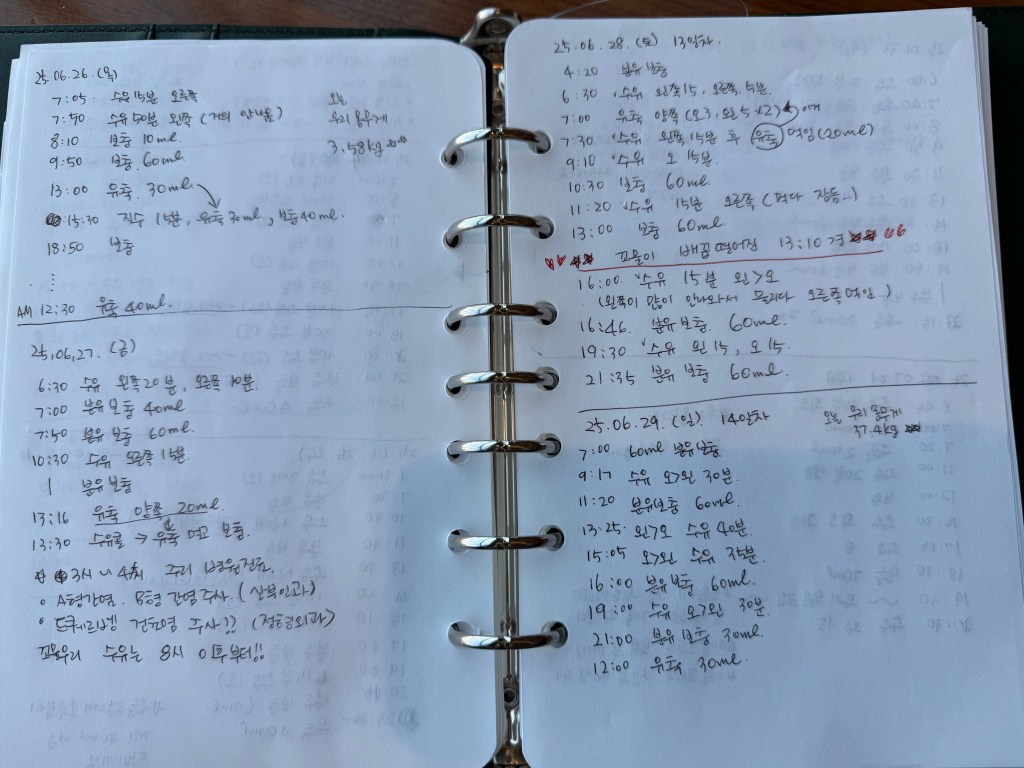 25.06.26.(목)
7:05 수유 15분 오른쪽
7:50 수유 50분 왼쪽 (거의 안나옴)
8:10 보충 10ml
9:50 보충 60ml
오늘
우리 몸무게
3.58kg
13:00 유축 30ml
15:30 직수 15분, 유축 30ml, 보충 40ml.
18:50 보충
⋮
AM 12:30 유축 40ml.
25.06.27.(금)
6:30 수유 왼쪽 20분, 오른쪽 10분
7:00 분유보충 40ml
7:50 분유보충 60ml
10:30 수유 오른쪽 15분
1 분유보충
13:16 유축 양쪽 20ml
13:30 수유콜 → 유축 먹고 보충.
3시 ~ 4시
A형간염. B형간염주사. (산부인과)
건초염 주사?? (정형외과)
수유는 8시 이후부터!!
25.06.28.(토) 13일차.
4:20 분유보충
6:30 수유 왼쪽 15, 오른쪽 5분.
7:00 유축 양쪽 (오3, 왼5
7:30 수유 왼쪽 15분 후 유축 먹임 (20ml)
9:10 수유 오 15분.
10:30 보충 60ml
11:20 수유 15분 오른쪽 (먹다 잠듬...)
13:00 보충 60ml
배꼽 떨어짐 13:10경
16:00 수유 15분 왼>오
(왼쪽이 많이 안나와서 오른쪽 먹임)
16:46. 분유보충. 60ml.
19:30 수유 왼15, 오15.
21:35 분유보충 60ml.
25.06.29.(일). 14일차
오늘 우리 몸무게
37.4kg
7:00 60ml 분유보충
9:17 수유 오>왼 30분.
11:20 분유보충 60ml.
13:25. 왼>오 수유 40분.
15:05 오>왼 수유 35분.
16:00 분유보충 60ml.
19:00 수유 오>왼 30분.
21:00 분유보충 30ml.
12:00 유축 30ml.